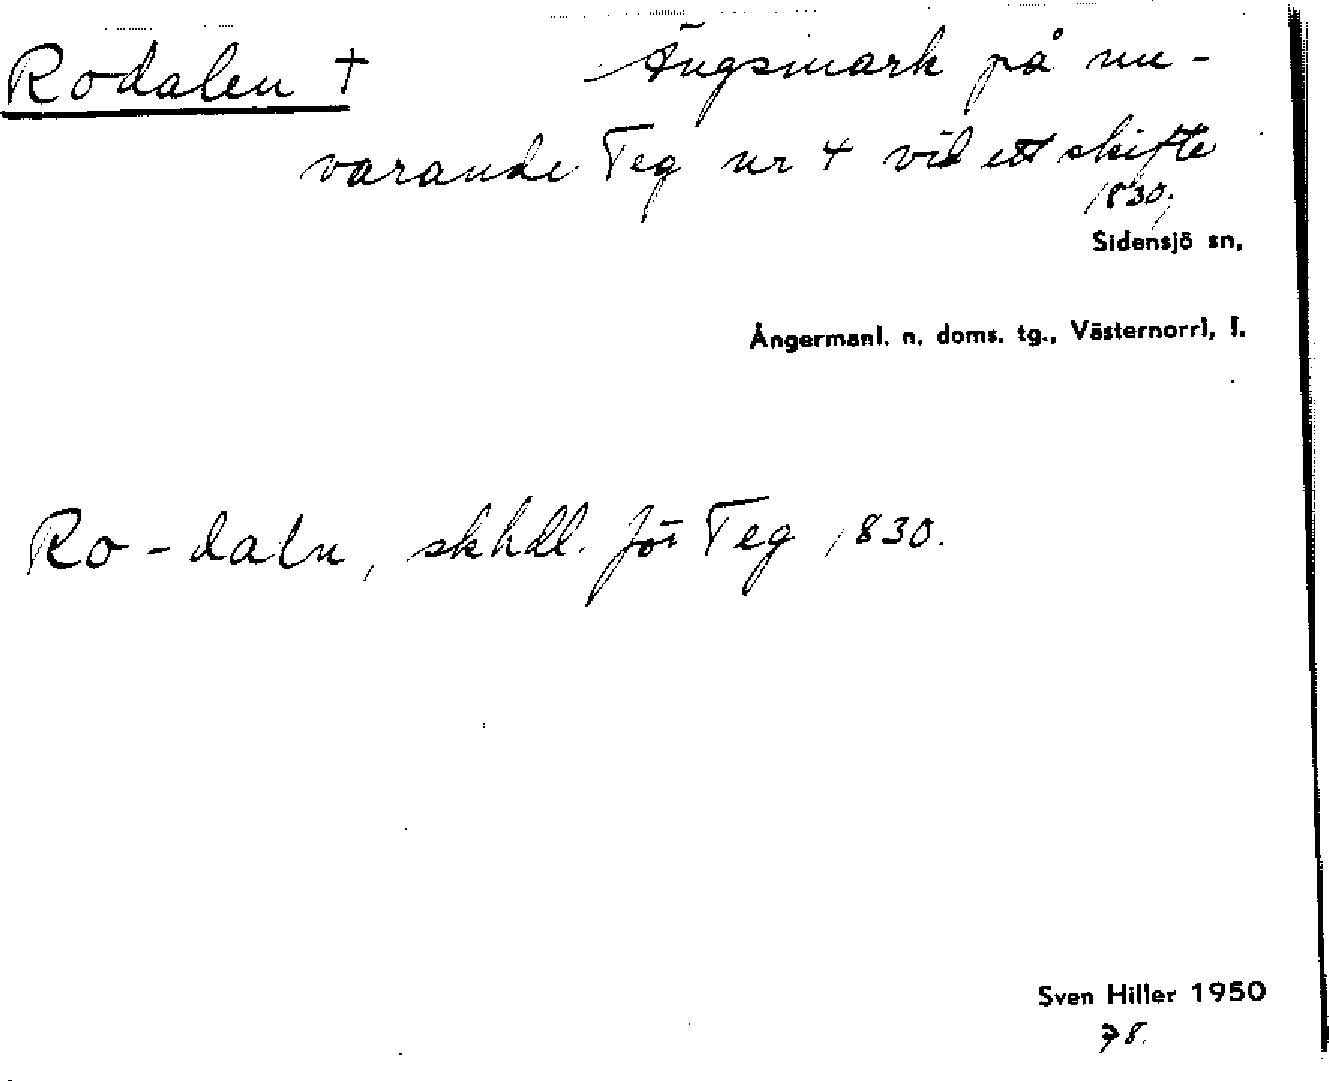 Rodalen † Ängsmark på nu-
varande Teg nr 4 vid ett skifte
1830,
Sidensjö sn,
Ångermanl. n. doms. tg., Västernorrl, l.
Ro-daln, skhdl. för Teg 1830.
Sven Hiller 1950
78.